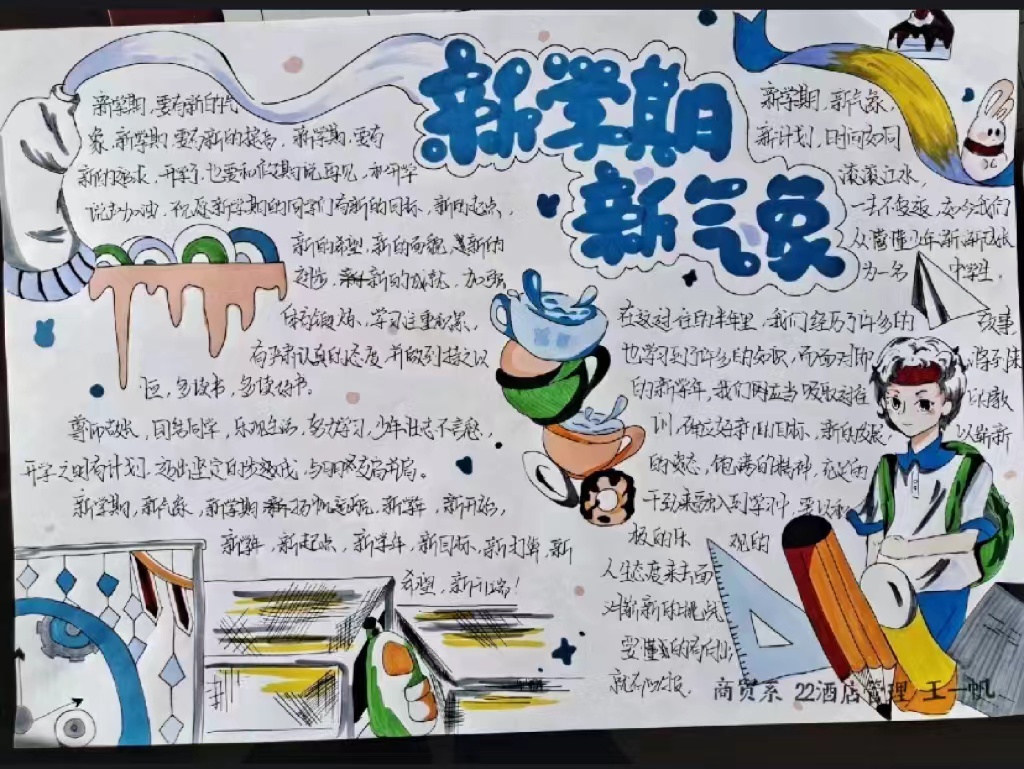 新学期
新气象
新学期,要有新的气
象,新学期,要有新的提高,新学期,要有
新的要求,开学了,也要和假期说再见,和开学
说声加油,祝愿新学期的同学们有新的目标,新的起点,
新的希望,新的面貌,是新的
新的成就,加强
体育锻炼,学习注重积累,
有严肃认真的态度,并做到持之以
恒,多读书,多读好书。
尊师友长,团结同学,乐观生活,努力学习,少年壮志不言愁,
开学之时有计划,迈出坚定的步
新学期,新气象,新学期 扬帆 新学年,新开始,
新学年,新起点,新学年,新目标,新打算,新
希望,新
新学期,新气象,
新计划,时间如同
滚滚江水,
一去不复返,如今我们
从懵懂少年渐渐成长
为一名 中学生,
在这过往的半年里,我们经历了许多的 故事
也学习到了许多的知识,而面对即 将到来
的新学年,我们更应当吸取过往 的教
训,确立好新的目标,新的成长, 以崭新
的姿态,饱满的精神,充足的
干劲来融入到学习中,要以积
极的乐 观的
人生态度来去面
对崭新的挑战
要懂的
就不
商贸系 22酒店管理 王一帆